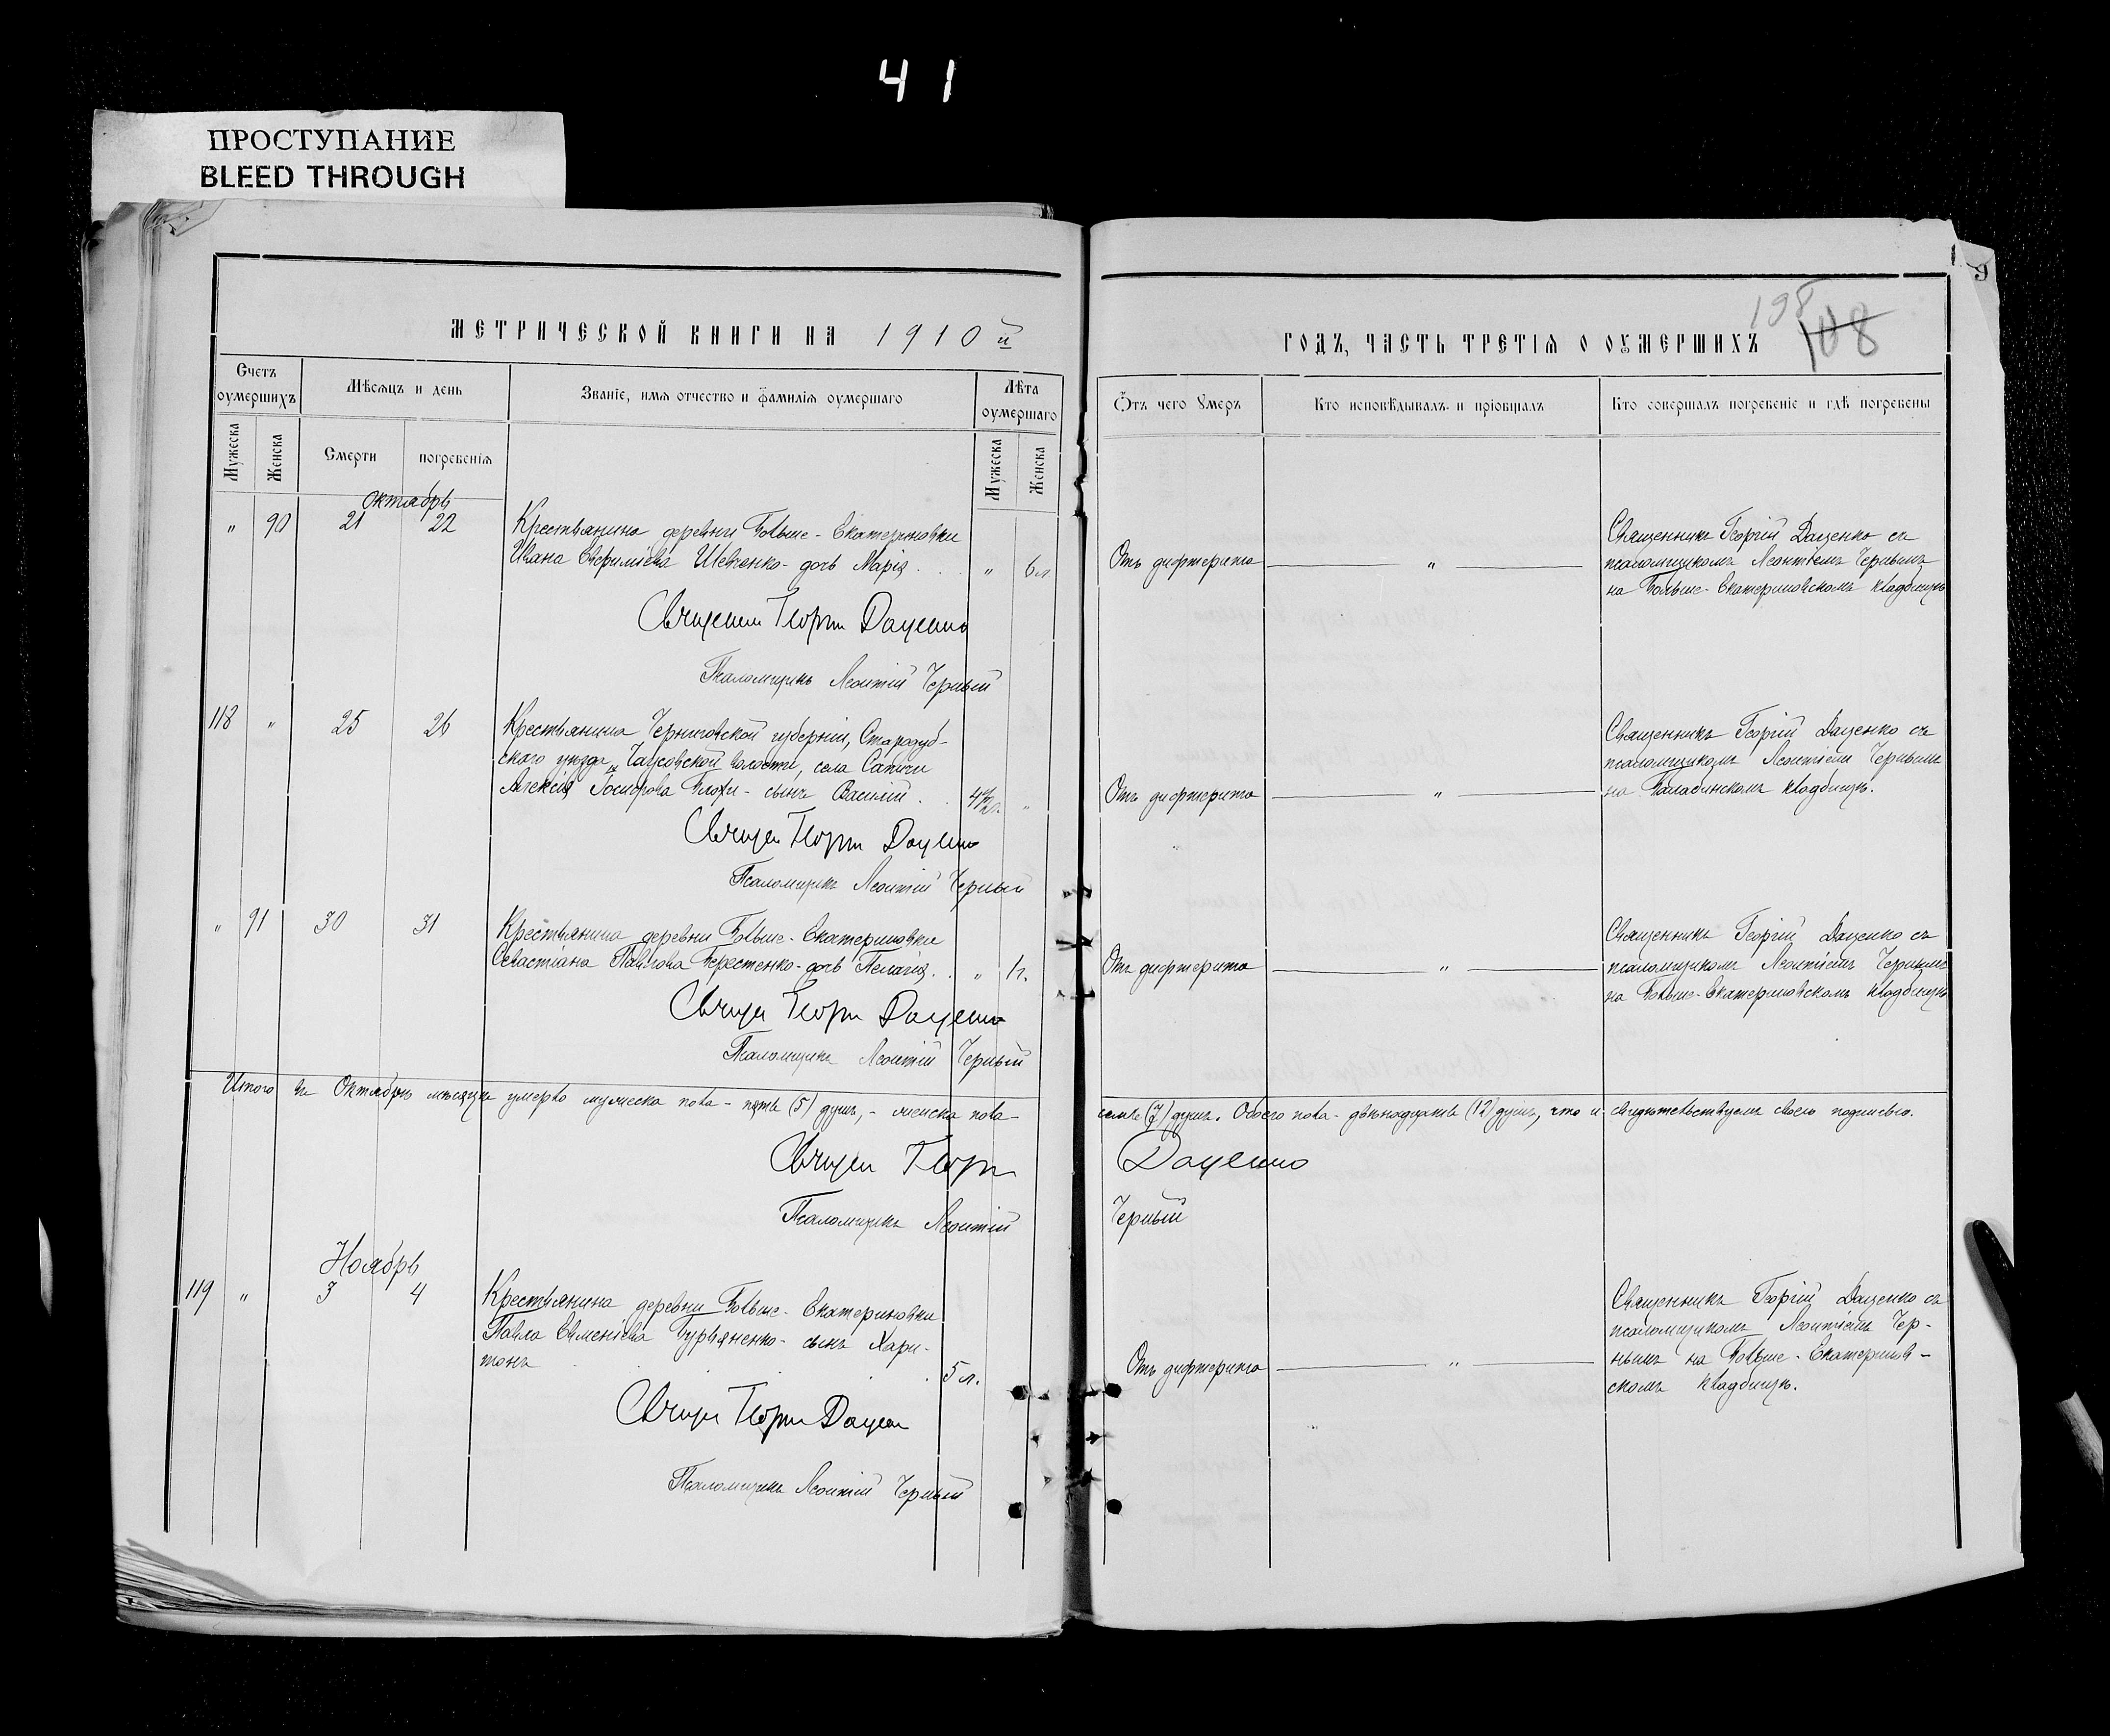 41
ПРОСТУПАНИЕ
BLEED THROUGH
МЕТРИЧЕСКОЙ КНИГИ НА 1910й
Счетъ оумершихъ
Мѣсяцъ и день
Званіе, имя отчество и фамилія оумершаго
Лѣта оумершаго
Мужеска
Женска
Смерти
погребенія
Мужеска
Женска
Октябрь
" 90 21 22 Крестьянина деревни Больше-Екатериновки
Ивана Ефиміева Шевченко - дочь Марія . . " 6 л
Священник Георгій Даценко
Псаломщикъ Леонтій Черный
118 " 25 26 Крестьянина Черниговской губерніи, Стародуб-
скаго уѣзда, волости, села
Алексія сынъ Василій . . "
Священ Георгій Даценко
Псаломщикъ Леонтій Черный
" 91 30 31 Крестьянина деревни Больше-Екатериновки
Севастіана Павлова Берестенко - дочь Пелагія . . " 1 г.
Священ Георгій Даценко
Псаломщикъ Леонтій Черный
Итого въ Октябрѣ мѣсяцѣ умерло мужеска пола - пять (5) душъ, - женска пола
Священ Георгій
Псаломщикъ Леонтій
Ноябрь
119 " 3 4 Крестьянина деревни Больше-Екатериновки
Павла Гурьяненко - сынъ Хари-
тонъ . . 5 л.
Священ Георгій Даценко
Псаломщикъ Леонтій Черный
9
198
108
ГОДЪ, ЧАСТЬ ТРЕТІЯ О ОУМЕРШИХЪ
Ѿтъ чего оумеръ
Кто исповѣдывалъ и пріобщалъ
Кто совершалъ погребеніе и гдѣ погребены
Священникъ Георгій Даценко съ
Отъ дифтерита " псаломщикомъ Леонтіемъ Чернымъ
на Больше-Екатериновскомъ кладбищѣ
Священникъ Георгій Даценко съ
псаломщикомъ Леонтіемъ Чернымъ
Отъ дифтерита " на кладбищѣ.
Священникъ Георгій Даценко съ
Отъ дифтерита " псаломщикомъ Леонтіемъ Чернымъ
на Больше-Екатериновскомъ кладбищѣ
семь (7) душъ. Обоего пола - двѣнадцать (12) душъ, что и свидѣтельствуемъ своею подписью.
Даценко
Черный
Священникъ Георгій Даценко съ
псаломщикомъ Леонтіемъ Чер-
Отъ дифтерита " нымъ на Больше-Екатеринов-
скомъ кладбищѣ.